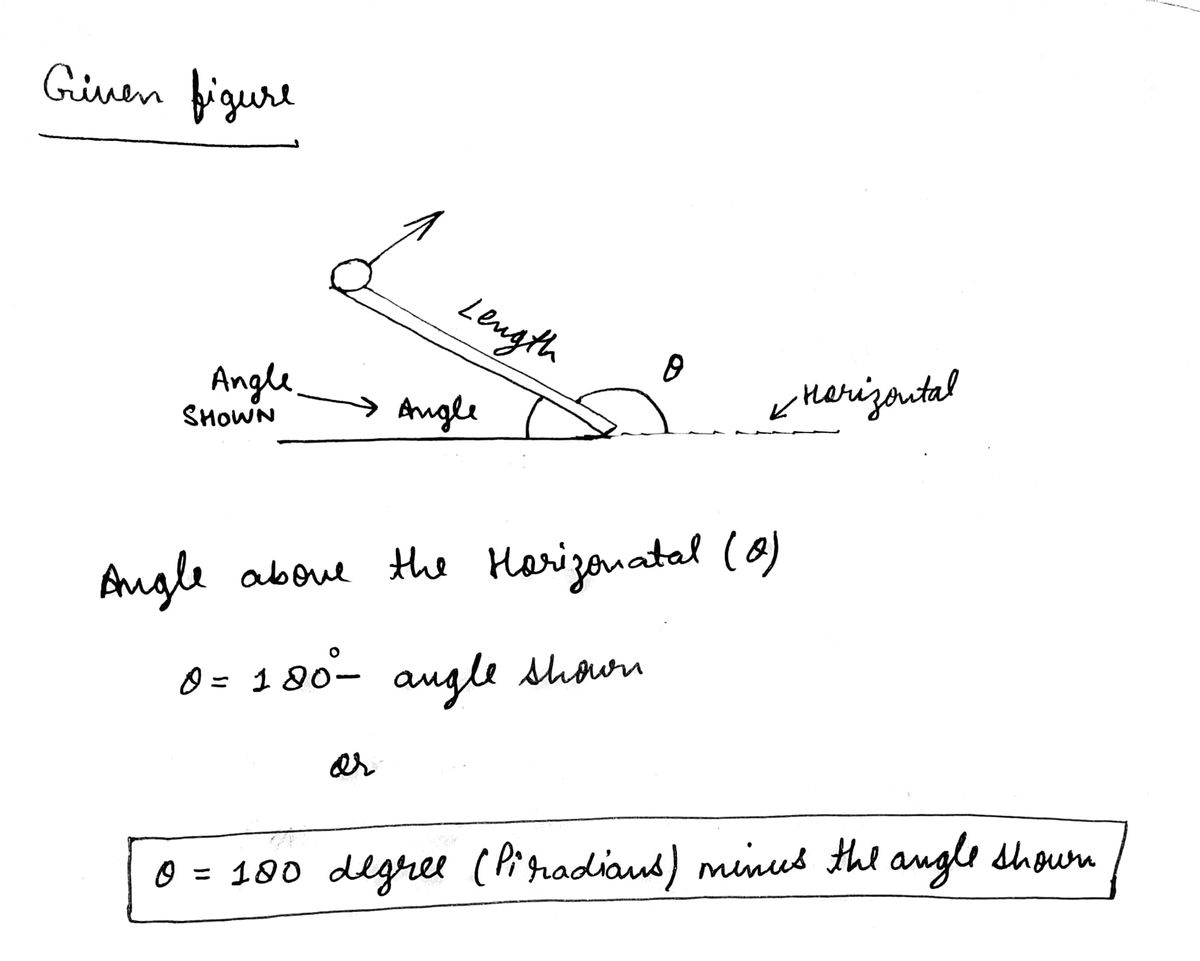 Given figure
Length
θ
Horizontal
Angle
SHOWN
Angle
Angle above the Horizonatal (θ)
θ = 180° - angle shown
or
θ = 180 degree (Pi radians) minus the angle shown